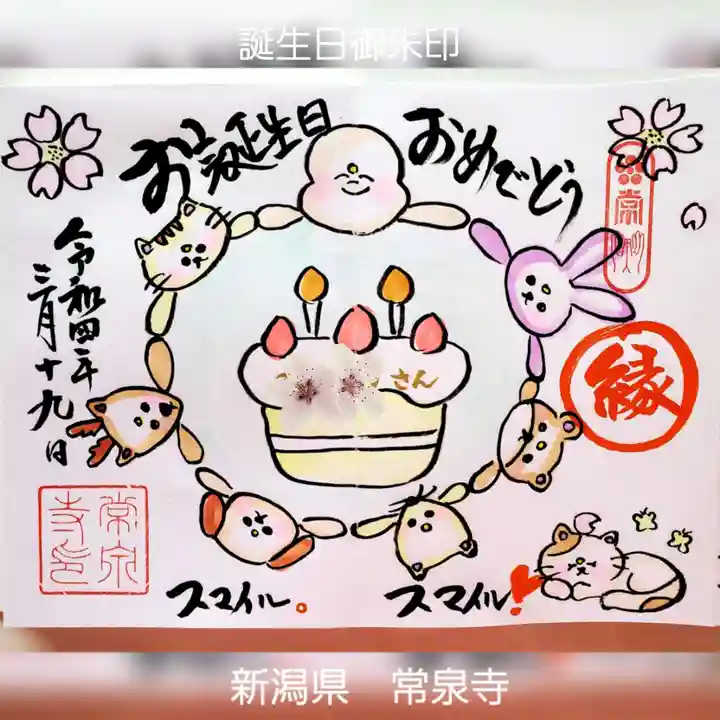 誕生日御朱印
お誕生日
おめでとう
常
令和四年
三月十九日
縁
さん
常泉
寺
スマイル。
スマイル!
新潟県 常泉寺